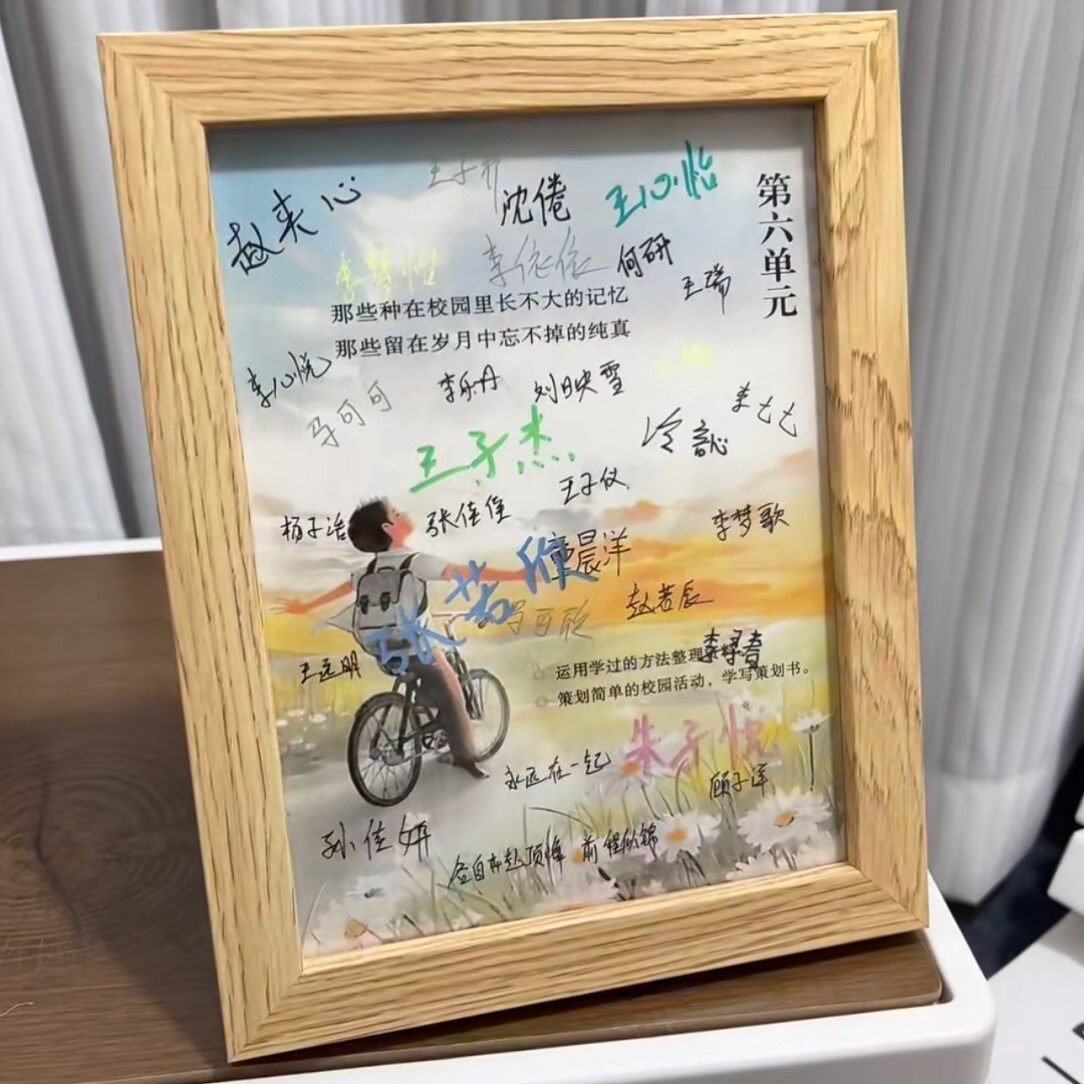 第六单元
王子轩
沈倦
王心怡
赵夹心
李依依
何研
王瑞
那些种在校园里长不大的记忆
那些留在岁月中忘不掉的纯真
李心悦
马可可
李乐丹
刘映雪
李七七
王子杰
冷
王子仪
杨子治
张佳佳
李梦歌
晨洋
张若欣
马可欣
赵若辰
王远明
运用学过的方法整理
策划简单的校园活动，学写策划书。
朱子悦
永远在一起
顾子洋
孙佳妍
各自奔赴顶峰 前程似锦